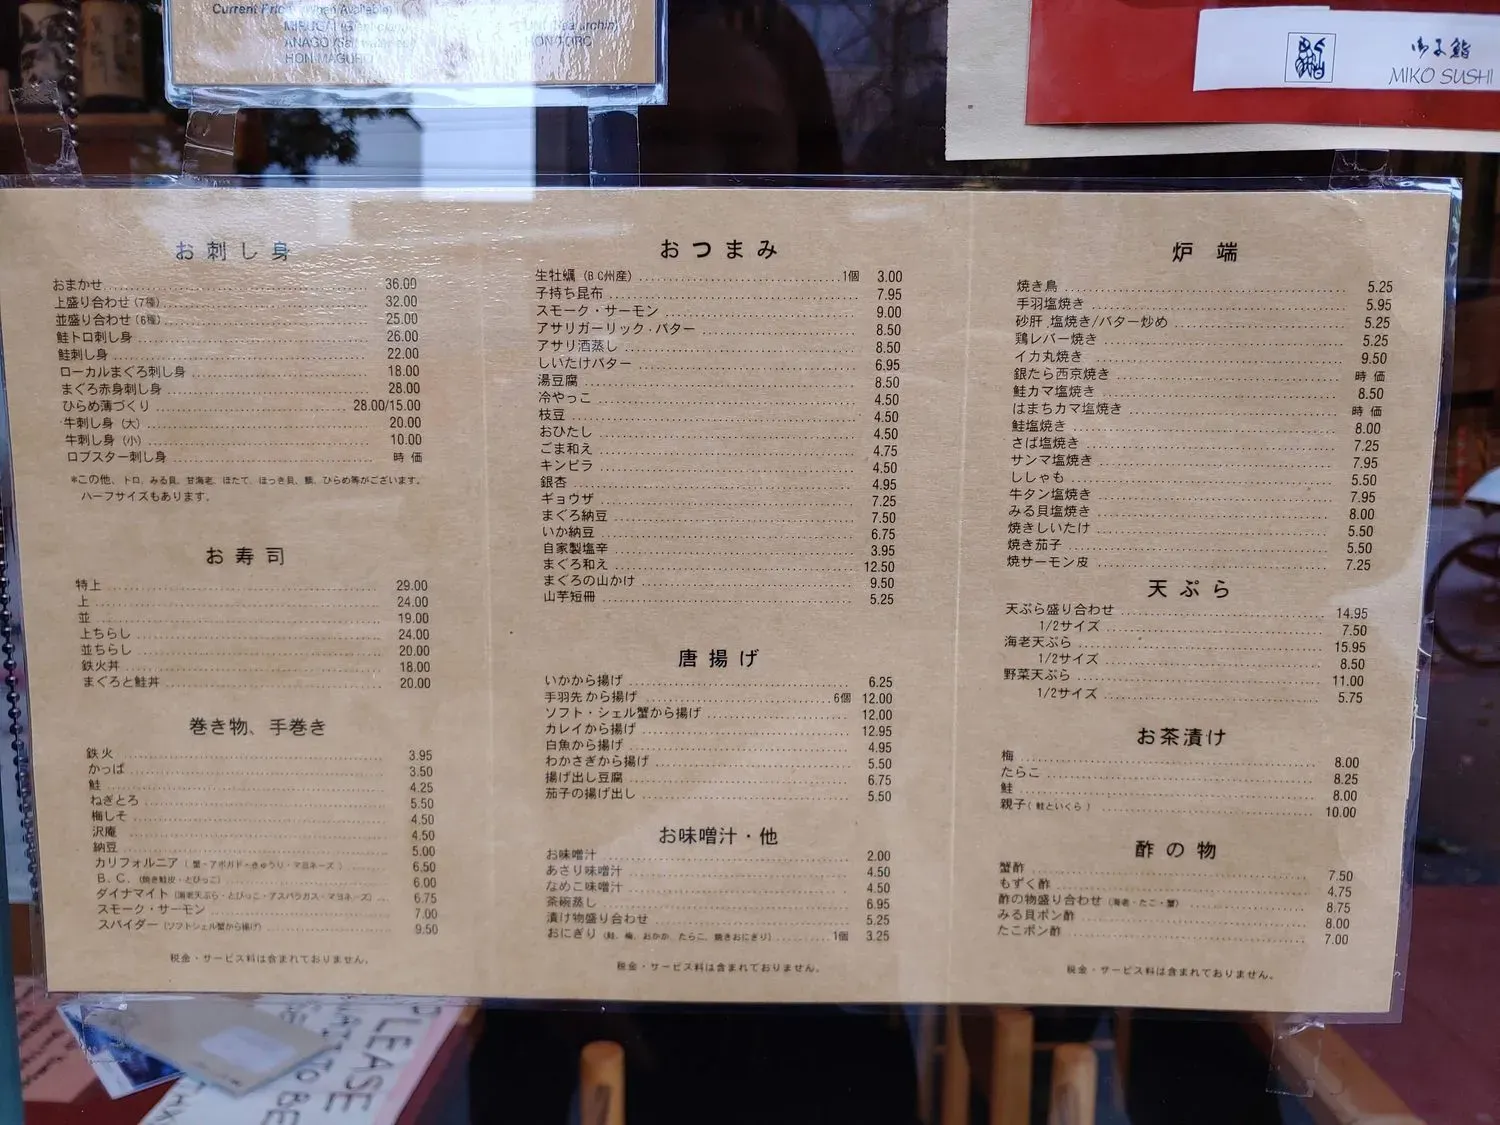 Current Price (When Available)
MIRUGAI (Giant clam)
ANAGO
HON MAGURO
UNI (Sea urchin)
HON TORO
御子鮨
MIKO SUSHI
お刺し身
おまかせ 36.00
上盛り合わせ (7種) 32.00
並盛り合わせ (6種) 25.00
鮭トロ刺し身 26.00
鮭刺し身 22.00
ローカルまぐろ刺し身 18.00
まぐろ赤身刺し身 28.00
ひらめ薄づくり 28.00/15.00
牛刺し身 (大) 20.00
牛刺し身 (小) 10.00
ロブスター刺し身 時価
*この他、トロ、みる貝、甘海老、ほたて、ほっき貝、鯛、ひらめ等がございます。
ハーフサイズもあります。
お寿司
特上 29.00
上 24.00
並 19.00
上ちらし 24.00
並ちらし 20.00
鉄火丼 18.00
まぐろと鮭丼 20.00
巻き物、手巻き
鉄火 3.95
かっぱ 3.50
鮭 4.25
ねぎとろ 5.50
梅しそ 4.50
沢庵 4.50
納豆 5.00
カリフォルニア (蟹・アボガド・きゅうり・マヨネーズ) 6.50
B.C. (焼き鮭皮・とびっこ) 6.00
ダイナマイト (海老天ぷら・とびっこ・アスパラガス・マヨネーズ) 6.75
スモーク・サーモン 7.00
スパイダー (ソフトシェル蟹から揚げ) 9.50
税金・サービス料は含まれておりません。
おつまみ
生牡蠣 (BC州産) 1個 3.00
子持ち昆布 7.95
スモーク・サーモン 9.00
アサリガーリック・バター 8.50
アサリ酒蒸し 8.50
しいたけバター 6.95
湯豆腐 8.50
冷やっこ 4.50
枝豆 4.50
おひたし 4.50
ごま和え 4.75
キンピラ 4.50
銀杏 4.95
ギョウザ 7.25
まぐろ納豆 7.50
いか納豆 6.75
自家製塩辛 3.95
まぐろ和え 12.50
まぐろの山かけ 9.50
山芋短冊 5.25
唐揚げ
いかから揚げ 6.25
手羽先から揚げ 6個 12.00
ソフト・シェル蟹から揚げ 12.00
カレイから揚げ 12.95
白魚から揚げ 4.95
わかさぎから揚げ 5.50
揚げ出し豆腐 6.75
茄子の揚げ出し 5.50
お味噌汁・他
お味噌汁 2.00
あさり味噌汁 4.50
なめこ味噌汁 4.50
茶碗蒸し 6.95
漬け物盛り合わせ 5.25
おにぎり (鮭、梅、おかか、たらこ、焼きおにぎり) 1個 3.25
税金・サービス料は含まれておりません。
炉端
焼き鳥 5.25
手羽塩焼き 5.95
砂肝 塩焼き/バター炒め 5.25
鶏レバー焼き 5.25
イカ丸焼き 9.50
銀たら西京焼き 時価
鮭カマ塩焼き 8.50
はまちカマ塩焼き 時価
鮭塩焼き 8.00
さば塩焼き 7.25
サンマ塩焼き 7.95
ししゃも 5.50
牛タン塩焼き 7.95
みる貝塩焼き 8.00
焼きしいたけ 5.50
焼き茄子 5.50
焼サーモン皮 7.25
天ぷら
天ぷら盛り合わせ 14.95
1/2サイズ 7.50
海老天ぷら 15.95
1/2サイズ 8.50
野菜天ぷら 11.00
1/2サイズ 5.75
お茶漬け
梅 8.00
たらこ 8.25
鮭 8.00
親子 (鮭といくら) 10.00
酢の物
蟹酢 7.50
もずく酢 4.75
酢の物盛り合わせ (海老・たこ・蟹) 8.75
みる貝ポン酢 8.00
たこポン酢 7.00
税金・サービス料は含まれておりません。
PLEASE
TO BE